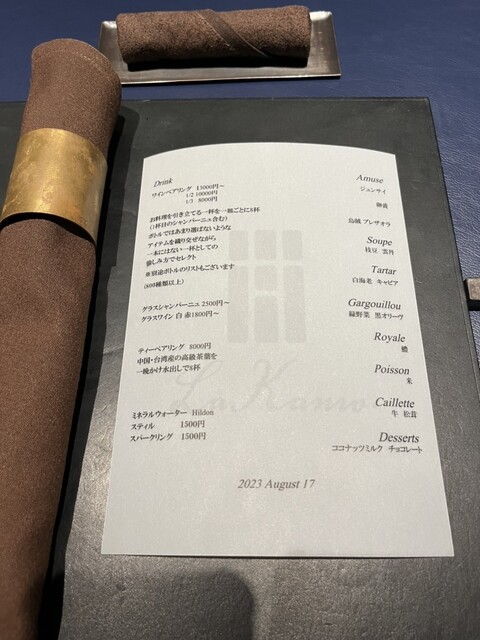 Drink
ワインペアリング 13000円～
1/2 10000円
1/3 8000円
お料理を引き立てる一杯を一皿ごとに8杯
(1杯目のシャンパーニュ含む)
ボトルではあまり選ばないような
アイテムを織り交ぜながら
一本にはない一杯としての
愉しみ方でセレクト
※別途ボトルのリストもございます
(600種類以上)
グラスシャンパーニュ 2300円～
グラスワイン 白 赤1800円～
ティーペアリング 8000円
中国・台湾産の高級茶葉を
一晩かけ水出しで8杯
ミネラルウォーター Hildon
スティル 1500円
スパークリング 1500円
Amuse
ジュンサイ
烏賊 ブレザオラ
Soupe
枝豆 雲丹
Tartar
白海老 キャビア
Gargouillou
緑野菜 黒オリーヴ
Royale
Poisson
米
Caillette
牛 松茸
Desserts
ココナッツミルク チョコレート
La Kanro
2023 August 17